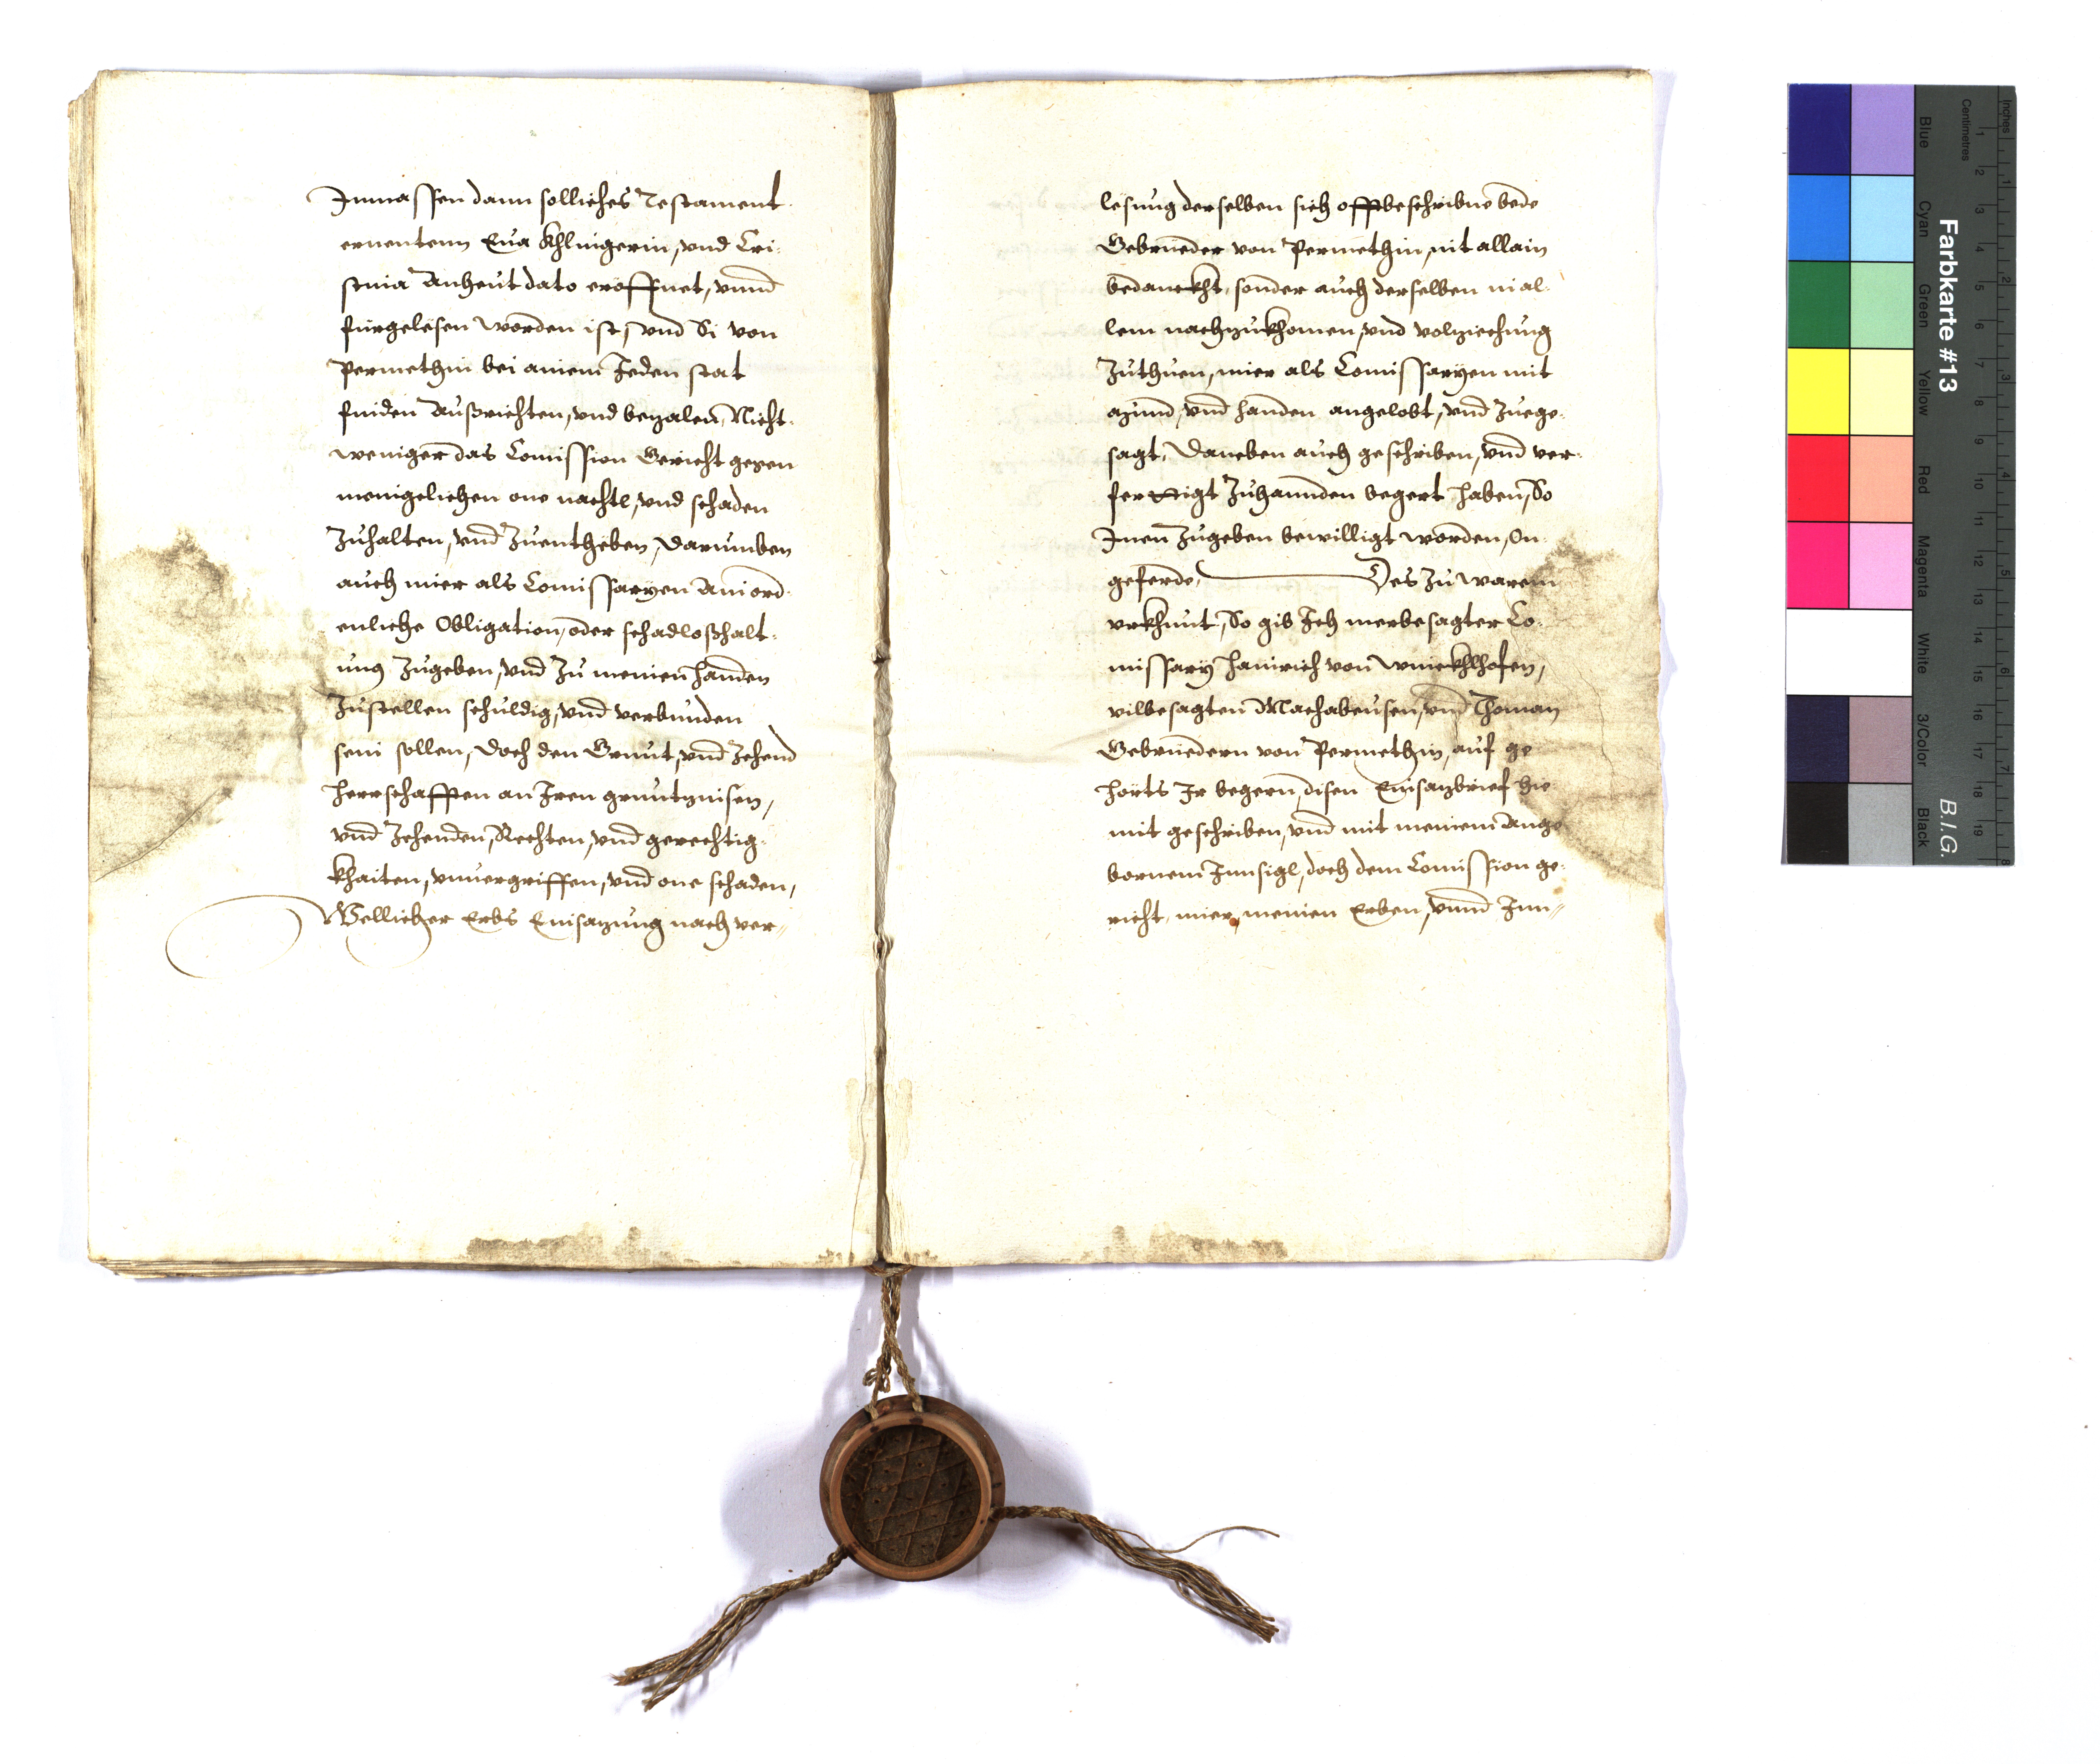 Inmassen dann solliches Testament
ernentenn Eua Khlingerin, vnd Cri-
stina Anheut dato eröffnet, vnnd
fürgelesen worden ist, vnd Si von
Permethin bei ainem Jeden stat
finden Außrichten, vnd bezalen, Nicht-
weniger das Comission Gericht gegen
menigelichen one nachtl, vnd schaden
Zuhalten, vnd Zuentheben, Darumben
auch mier als Comissaryen Ain ord-
enliche Obligation, oder schadloßhalt-
ung Zugeben, vnd Zu meinen handen
Zustellen schuldig, vnd verbunden
sein sollen, Doch den Grunt, vnd Zehend
herrschafften an Iren gruntzinsen,
vnd Zehenden, Rechten, vnd gerechtig-
khaiten, vnuergriffen, vnd one schaden,
Wellicher Erbs Einsazung nach ver-
lesung derselben sich offtbeschribne bede
Gebrueder von Permethin, nit allain
bedanckht, sonder auch derselben in al-
lem nachzukhomen, vnd volziechung
Zuthuen, mier als Comissaryen mit
mund, vnd handen angelobt, vnd Zuege-
sagt, Daneben auch geschriben, vnd ver-
ferttigt Zuhannden begert haben, So
Inen Zugeben bewilligt worden, On-
geferde, Des Zu warem
vrkhunt, So gib Ich merbesagter Co-
missary hainrich von Winckhlhofen,
vilbesagten Machabeusen, vnd Thoman
Gebruedern von Permethin, auf ge
hörts Ir begern, disen Einsazbrief hie
mit geschriben, vnd mit meinem Ange
bornem Innsigl, doch dem Comission ge-
richt, mier, meinen Erben, vnnd Inn-
Farbkarte #13
B.I.G.
Inches
Centimetres
Blue
Cyan
Green
Yellow
Red
Magenta
White
3/Color
Black